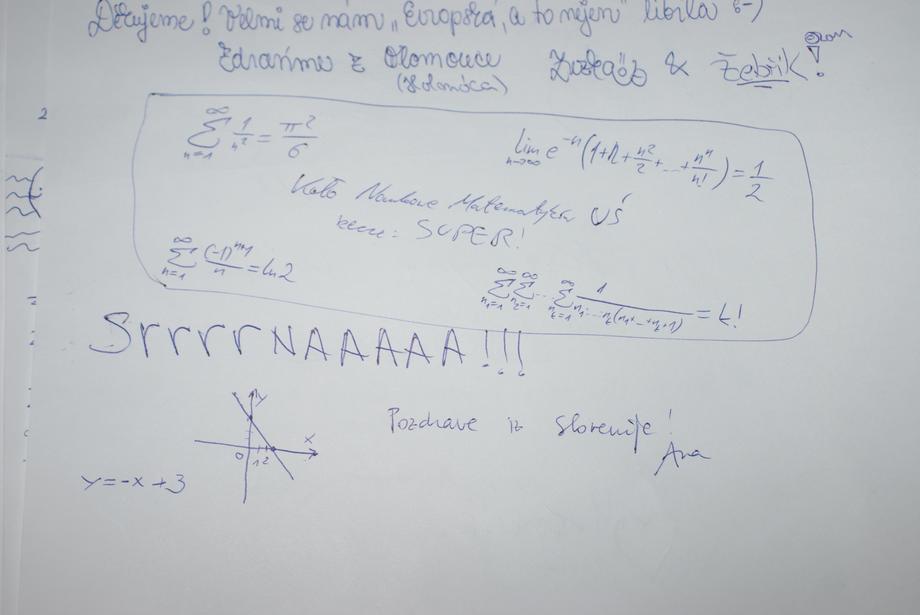 Děkujeme! Velmi se nám „Evropská, a to nejen" líbila 8-)
Zdravíme z Olomouce & Žebřík!
(Holomóca)
2
∑_{n=1}^{∞} 1/n² = π²/6
lim_{n→∞} e^{-n} (1+n+n²/2+...+nⁿ/n!) = 1/2
Koło Naukowe Matematyków UŚ
SUPER!
∑_{n=1}^{∞} (-1)^{n+1}/n = ln2
∑_{n₁=1}^{∞} ∑_{n₂=1}^{∞} ... ∑_{n_k=1}^{∞} 1/(n₁...n_k(n₁+...+n_k+1)) = k!
SrrrrNAAAAA!!!
y
x
0 1 2
y=-x+3
Pozdrave iz Slovenije!
Ana